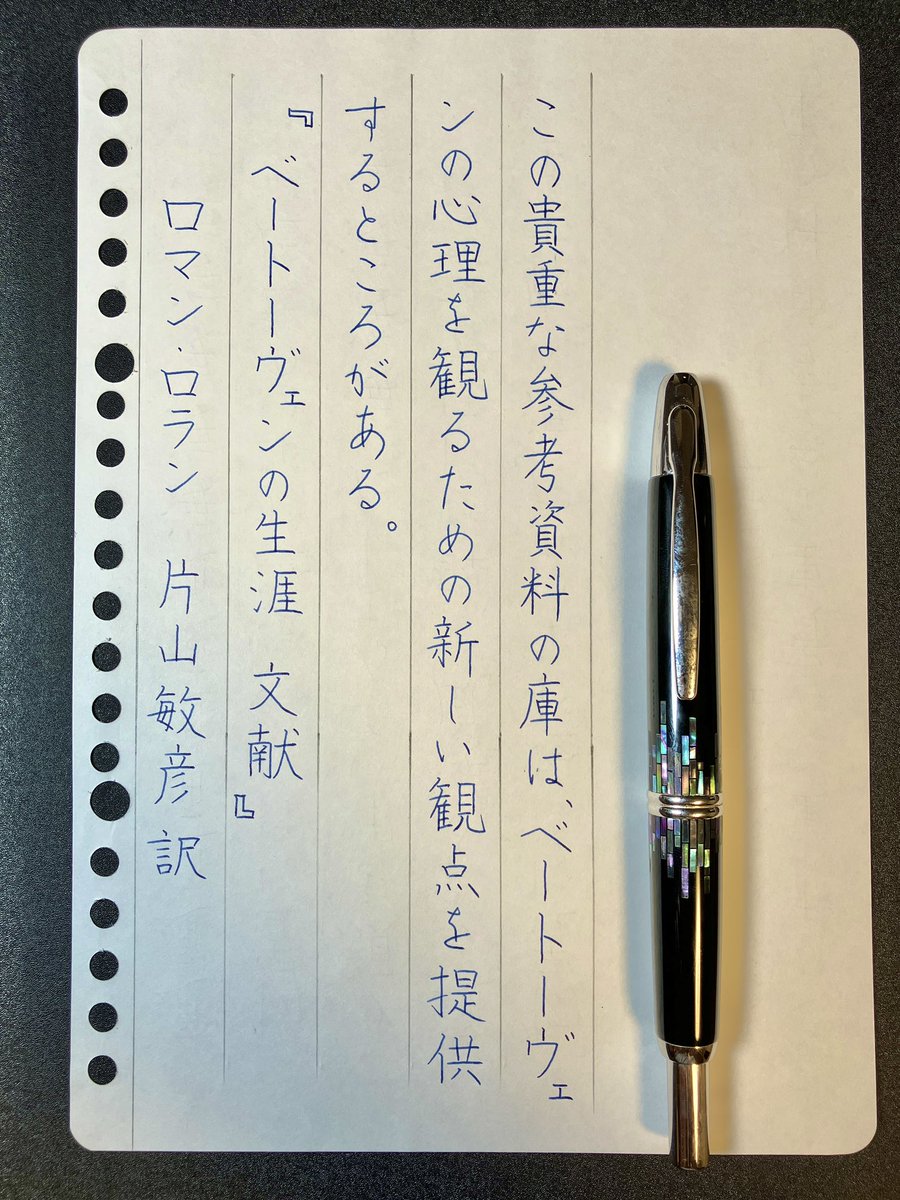 この貴重な参考資料の庫は、ベートーヴェ
ンの心理を観るための新しい観点を提供
するところがある。
『ベートーヴェンの生涯　文献』
ロマン・ロラン　片山敏彦訳